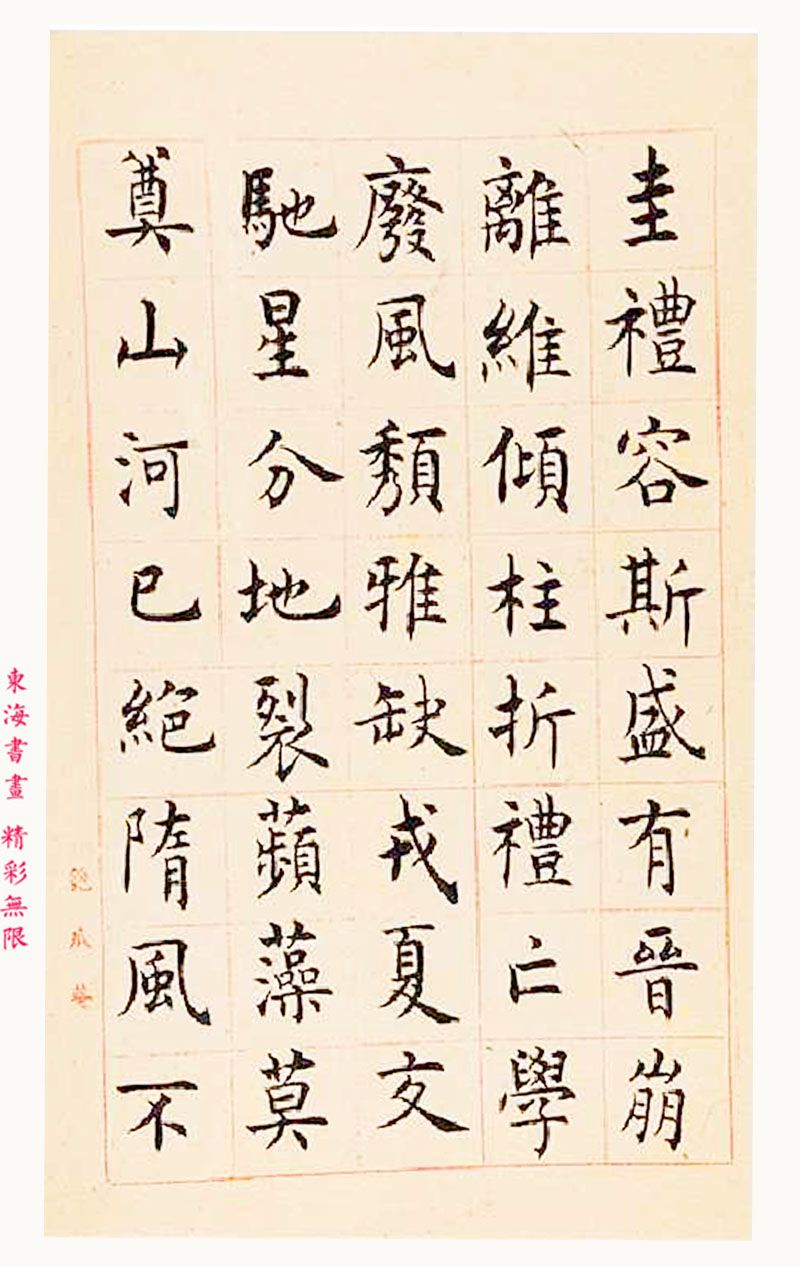 圭禮容斯盛有晉崩
離維傾柱折禮亡學
廢風頽雅缺戎夏交
馳星分地裂蘋藻莫
奠山河已絶隋風不
東海書畫 精彩無限